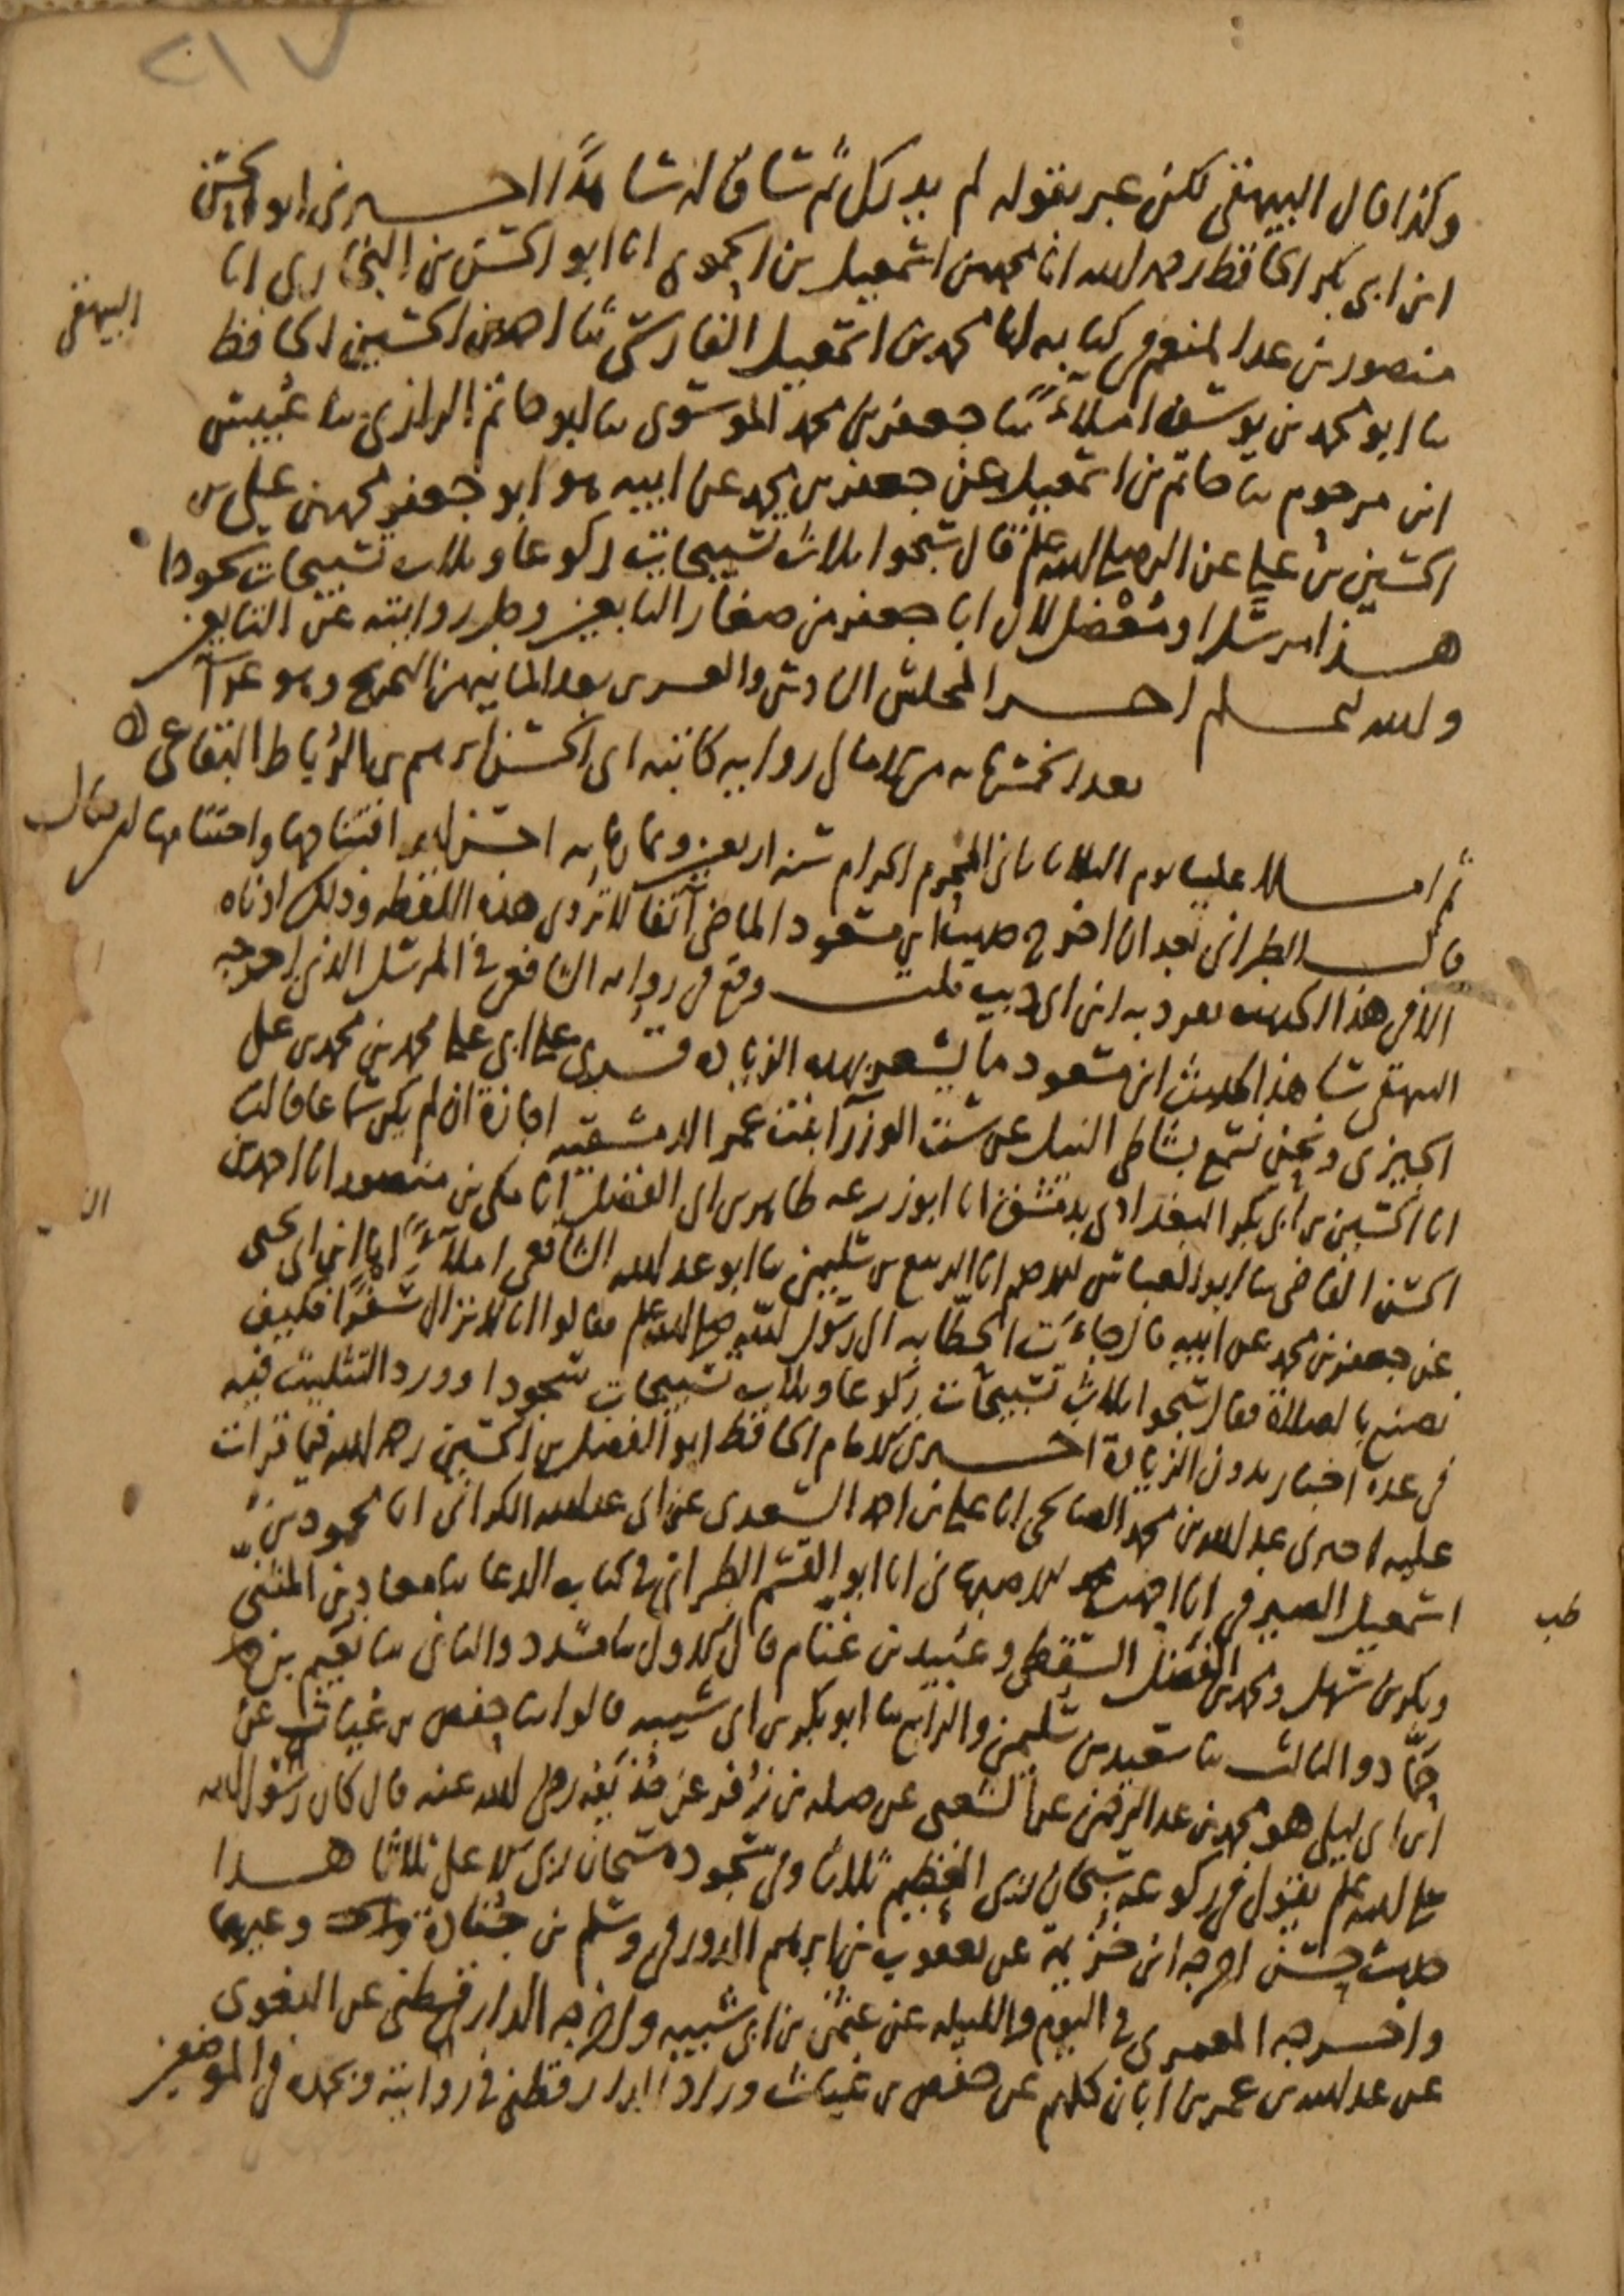 ٢١٧
وكذا قال البيهقي لكن عبر بقوله لم يدرك ثم ساق له شاهدا اخبرني ابو الحسن
ابن ابي بكر الحافظ رحمه الله انا محمد بن اسمعيل بن الحموي انا ابو الحسن بن البخاري انا
منصور بن عبد المنعم في كتابه انا محمد بن اسمعيل الفارسي ثنا احمد بن الحسين الحافظ
البيهقي
ثنا ابو محمد بن يوسف املاء ثنا جعفر بن محمد الموسوي ثنا ابو حاتم الرازي ثنا عبيس
ابن مرحوم ثنا حاتم بن اسمعيل عن جعفر بن محمد عن ابيه هو ابو جعفر محمد بن علي بن
الحسين بن علي عن النبي صلى الله عليه وسلم قال سبحوا ثلاث تسبيحات ركوعا وثلاث تسبيحات سجودا
هذا مرسل او معضل لان ابا جعفر من صغار التابعين وجل روايته عن التابعين
والله اعلم اخر المجلس السادس والعشرين بعد المايتين من التخريج وهو
بعد الخمسمايه من الامالي رواية كاتبه ابي الحسن ابرهيم بن الرباط البقاعي
ثم املا علينا يوم الثلاثا ثاني المحرم الحرام سنة اربعين وثمانمايه احسن الله افتتاحها واختتامها فقال
قال الطبراني بعد ان اخرج حديث ابن مسعود الماضي آنفا لا تروى هذه اللفظه وذلك ادناه
الا في هذا الحديث تفرد به ابن ابي ذيب قلت وقع في رواية الشافعي في المرسل الذي اخرجه
البيهقي شاهدا لحديث ابن مسعود ما يشعر بهذه الزيادة قرئ على ابي علي محمد بن محمد بن علي
الجيزي ونحن نسمع بشاطي النيل عن ست الوزراء بنت عمر الدمشقيه اجازة ان لم يكن سماعا قالت
انا الحسين بن ابي بكر البغدادي بدمشق انا ابو زرعه طاهر بن ابي الفضل انا مكي بن منصور انا احمد بن
الحسن القاضي ثنا ابو العباس الاصم انا الربيع بن سليمن ثنا ابو عبد الله الشافعي املاء انا ابن ابي يحيى
عن جعفر بن محمد عن ابيه قال جاءت الحطابه الى رسول الله صلى الله عليه وسلم فقالوا انا لا نزال سفرا فكيف
نصنع بالصلاة فقال سبحوا ثلاث تسبيحات ركوعا وثلاث تسبيحات سجودا وورد التثليث فيه
في عدة اخبار بدون الزيادة اخبرني الامام الحافظ ابو الفضل بن الحسين رحمه الله فيما قرات
عليه اخبرني عبد الله بن محمد الصالحي انا علي بن احمد السعدي عن ابي عبد الله الكراني انا محمود بن
اسمعيل الصيرفي انا احمد بن محمد الاصبهاني انا ابو القسم الطبراني في كتاب الدعا ثنا معاذ بن المثنى
طب
وبكر بن سهل ومحمد بن الفضل السقطي وعبيد بن غنام قال الاول ثنا مسدد والثاني ثنا نعيم بن
حماد والثالث ثنا سعيد بن سليمن والرابع ثنا ابو بكر بن ابي شيبه قالوا ثنا حفص بن غياث عن
ابن ابي ليلى هو محمد بن عبد الرحمن عن الشعبي عن صله بن زفر عن حذيفه رضي الله عنه قال كان رسول الله
صلى الله عليه وسلم يقول في ركوعه سبحان ربي العظيم ثلاثا وفي سجوده سبحان ربي الاعلى ثلاثا هذا
حديث حسن اخرجه ابن خزيمة عن يعقوب بن ابرهيم الدورقي وسلم بن جنادة وغيرهما
واخرجه المعمري في اليوم والليله عن عثمن بن ابي شيبه واخرجه الدارقطني عن البغوي
عن عبد الله بن عمر بن ابان كلهم عن حفص بن غياث وزاد الدارقطني في روايته وبحمده في الموضعين